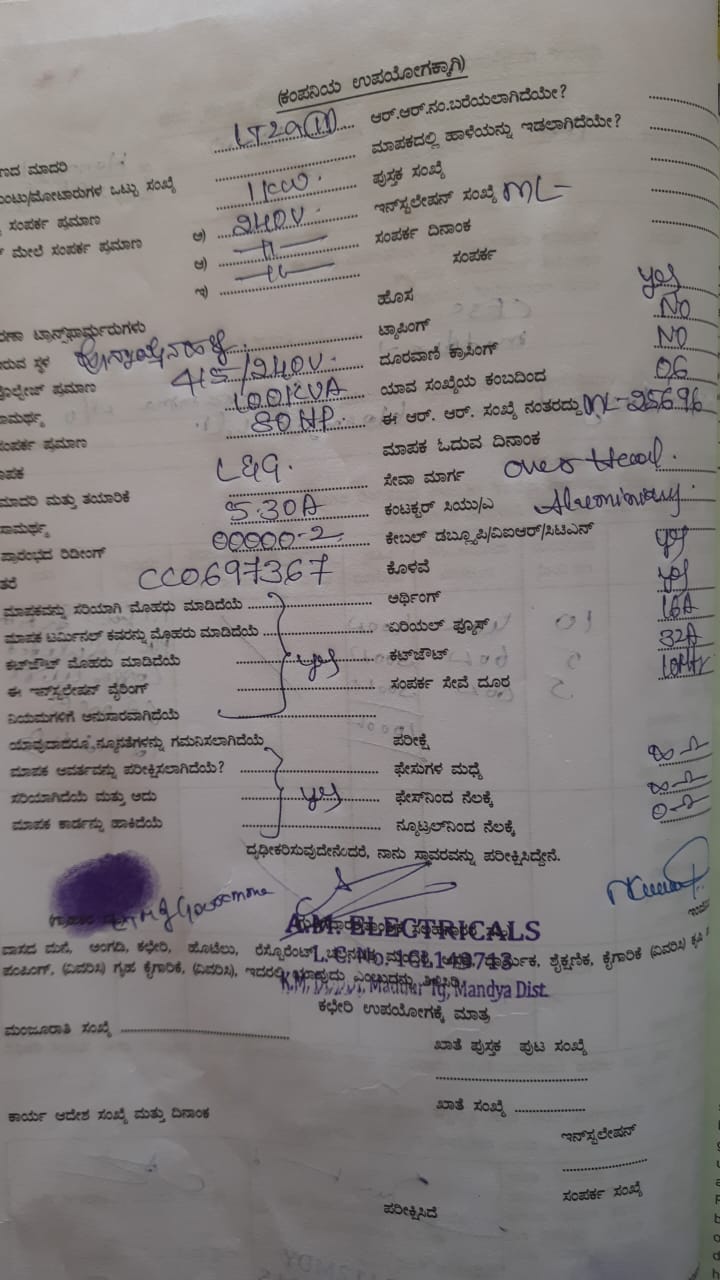 (ಕಂಪನಿಯ ಉಪಯೋಗಕ್ಕಾಗಿ)
ಮಾದರಿ LT2a(II) ಆರ್.ಆರ್.ನಂ.ಬರೆಯಲಾಗಿದೆಯೇ?
ಮೋಟಾರುಗಳ ಒಟ್ಟು ಸಂಖ್ಯೆ ಮಾಪಕದಲ್ಲಿ ಹಾಳೆಯನ್ನು ಇಡಲಾಗಿದೆಯೇ?
ಸಂಪರ್ಕ ಪ್ರಮಾಣ 1KW. ಪುಸ್ತಕ ಸಂಖ್ಯೆ
ಮೇಲೆ ಸಂಪರ್ಕ ಪ್ರಮಾಣ ಅ) 240V. ಇನ್‌ಸ್ಟಲೇಷನ್ ಸಂಖ್ಯೆ ML-
ಆ) —11— ಸಂಪರ್ಕ ದಿನಾಂಕ
ಇ) —11— ಸಂಪರ್ಕ
ಟ್ರಾನ್ಸ್‌ಫಾರ್ಮರುಗಳು ಹೊಸ yes
ಸ್ಥಳ ಟ್ಯಾಪಿಂಗ್ NO
ಪ್ರಮಾಣ 415/240V. ದೂರವಾಣಿ ಕ್ರಾಸಿಂಗ್ NO
100KVA ಯಾವ ಸಂಖ್ಯೆಯ ಕಂಬದಿಂದ 06
ಸಂಪರ್ಕ ಪ್ರಮಾಣ 80HP. ಈ ಆರ್. ಆರ್. ಸಂಖ್ಯೆ ನಂತರದ್ದು ML-25696
ಮಾಪಕ ಓದುವ ದಿನಾಂಕ
ಮಾದರಿ ಮತ್ತು ತಯಾರಿಕೆ L&G. ಸೇವಾ ಮಾರ್ಗ Over Head.
ಸಾಮರ್ಥ್ಯ 5-30A ಕಂಟಕ್ಟರ್ ಸಿಯು/ಎ
ಪ್ರಾರಂಭದ ರಿಡೀಂಗ್ 00000-2 ಕೇಬಲ್ ಡಬ್ಲ್ಯೂಪಿ/ವಿಐಆರ್/ಸಿಟಿಎನ್ yes
CC0697367 ಕೊಳವೆ yes
ಮಾಪಕವನ್ನು ಸರಿಯಾಗಿ ಮೊಹರು ಮಾಡಿದೆಯೆ ಆರ್ಥಿಂಗ್ 16A
ಮಾಪಕ ಟರ್ಮಿನಲ್ ಕವರನ್ನು ಮೊಹರು ಮಾಡಿದೆಯೆ ಏರಿಯಲ್ ಫ್ಯೂಸ್ 32A
ಕಟ್‌ಔಟ್ ಮೊಹರು ಮಾಡಿದೆಯೆ yes ಕಟ್‌ಔಟ್
ಈ ಇನ್‌ಸ್ಟಲೇಷನ್ ವೈರಿಂಗ್ ಸಂಪರ್ಕ ಸೇವೆ ದೂರ
ನಿಯಮಗಳಿಗೆ ಅನುಸಾರವಾಗಿದೆಯೆ
ಯಾವುದಾದರೂ ನ್ಯೂನತೆಗಳನ್ನು ಗಮನಿಸಲಾಗಿದೆಯೆ ಪರೀಕ್ಷೆ
ಮಾಪಕ ಆವರ್ತವನ್ನು ಪರೀಕ್ಷಿಸಲಾಗಿದೆಯೆ? ಫೇಸುಗಳ ಮಧ್ಯೆ ∞Ω
ಸರಿಯಾಗಿದೆಯೆ ಮತ್ತು ಅದು yes ಫೇಸ್‌ನಿಂದ ನೆಲಕ್ಕೆ ∞Ω
ಮಾಪಕ ಕಾರ್ಡನ್ನು ಹಾಕಿದೆಯೆ ನ್ಯೂಟ್ರಲ್‌ನಿಂದ ನೆಲಕ್ಕೆ 0Ω
ದೃಢೀಕರಿಸುವುದೇನೆಂದರೆ, ನಾನು ಸ್ಥಾವರವನ್ನು ಪರೀಕ್ಷಿಸಿದ್ದೇನೆ.
A.M. ELECTRICALS
ವಾಸದ ಮನೆ, ಅಂಗಡಿ, ಕಛೇರಿ, ಹೊಟೆಲು, ರೆಸ್ಟೊರೆಂಟ್, L.C. No. 16L149713 ಶೈಕ್ಷಣಿಕ, ಕೈಗಾರಿಕೆ (ವಿವರಿಸಿ) ಕೃಷಿ
ಪಂಪಿಂಗ್, (ವಿವರಿಸಿ) ಗೃಹ ಕೈಗಾರಿಕೆ, (ವಿವರಿಸಿ), ಇದರಲ್ಲಿ Maddur Tq, Mandya Dist.
ಕಛೇರಿ ಉಪಯೋಗಕ್ಕೆ ಮಾತ್ರ
ಮಂಜೂರಾತಿ ಸಂಖ್ಯೆ ಖಾತೆ ಪುಸ್ತಕ ಪುಟ ಸಂಖ್ಯೆ
ಕಾರ್ಯ ಆದೇಶ ಸಂಖ್ಯೆ ಮತ್ತು ದಿನಾಂಕ ಖಾತೆ ಸಂಖ್ಯೆ
ಇನ್‌ಸ್ಟಲೇಷನ್
ಸಂಪರ್ಕ ಸಂಖ್ಯೆ
ಪರೀಕ್ಷಿಸಿದೆ